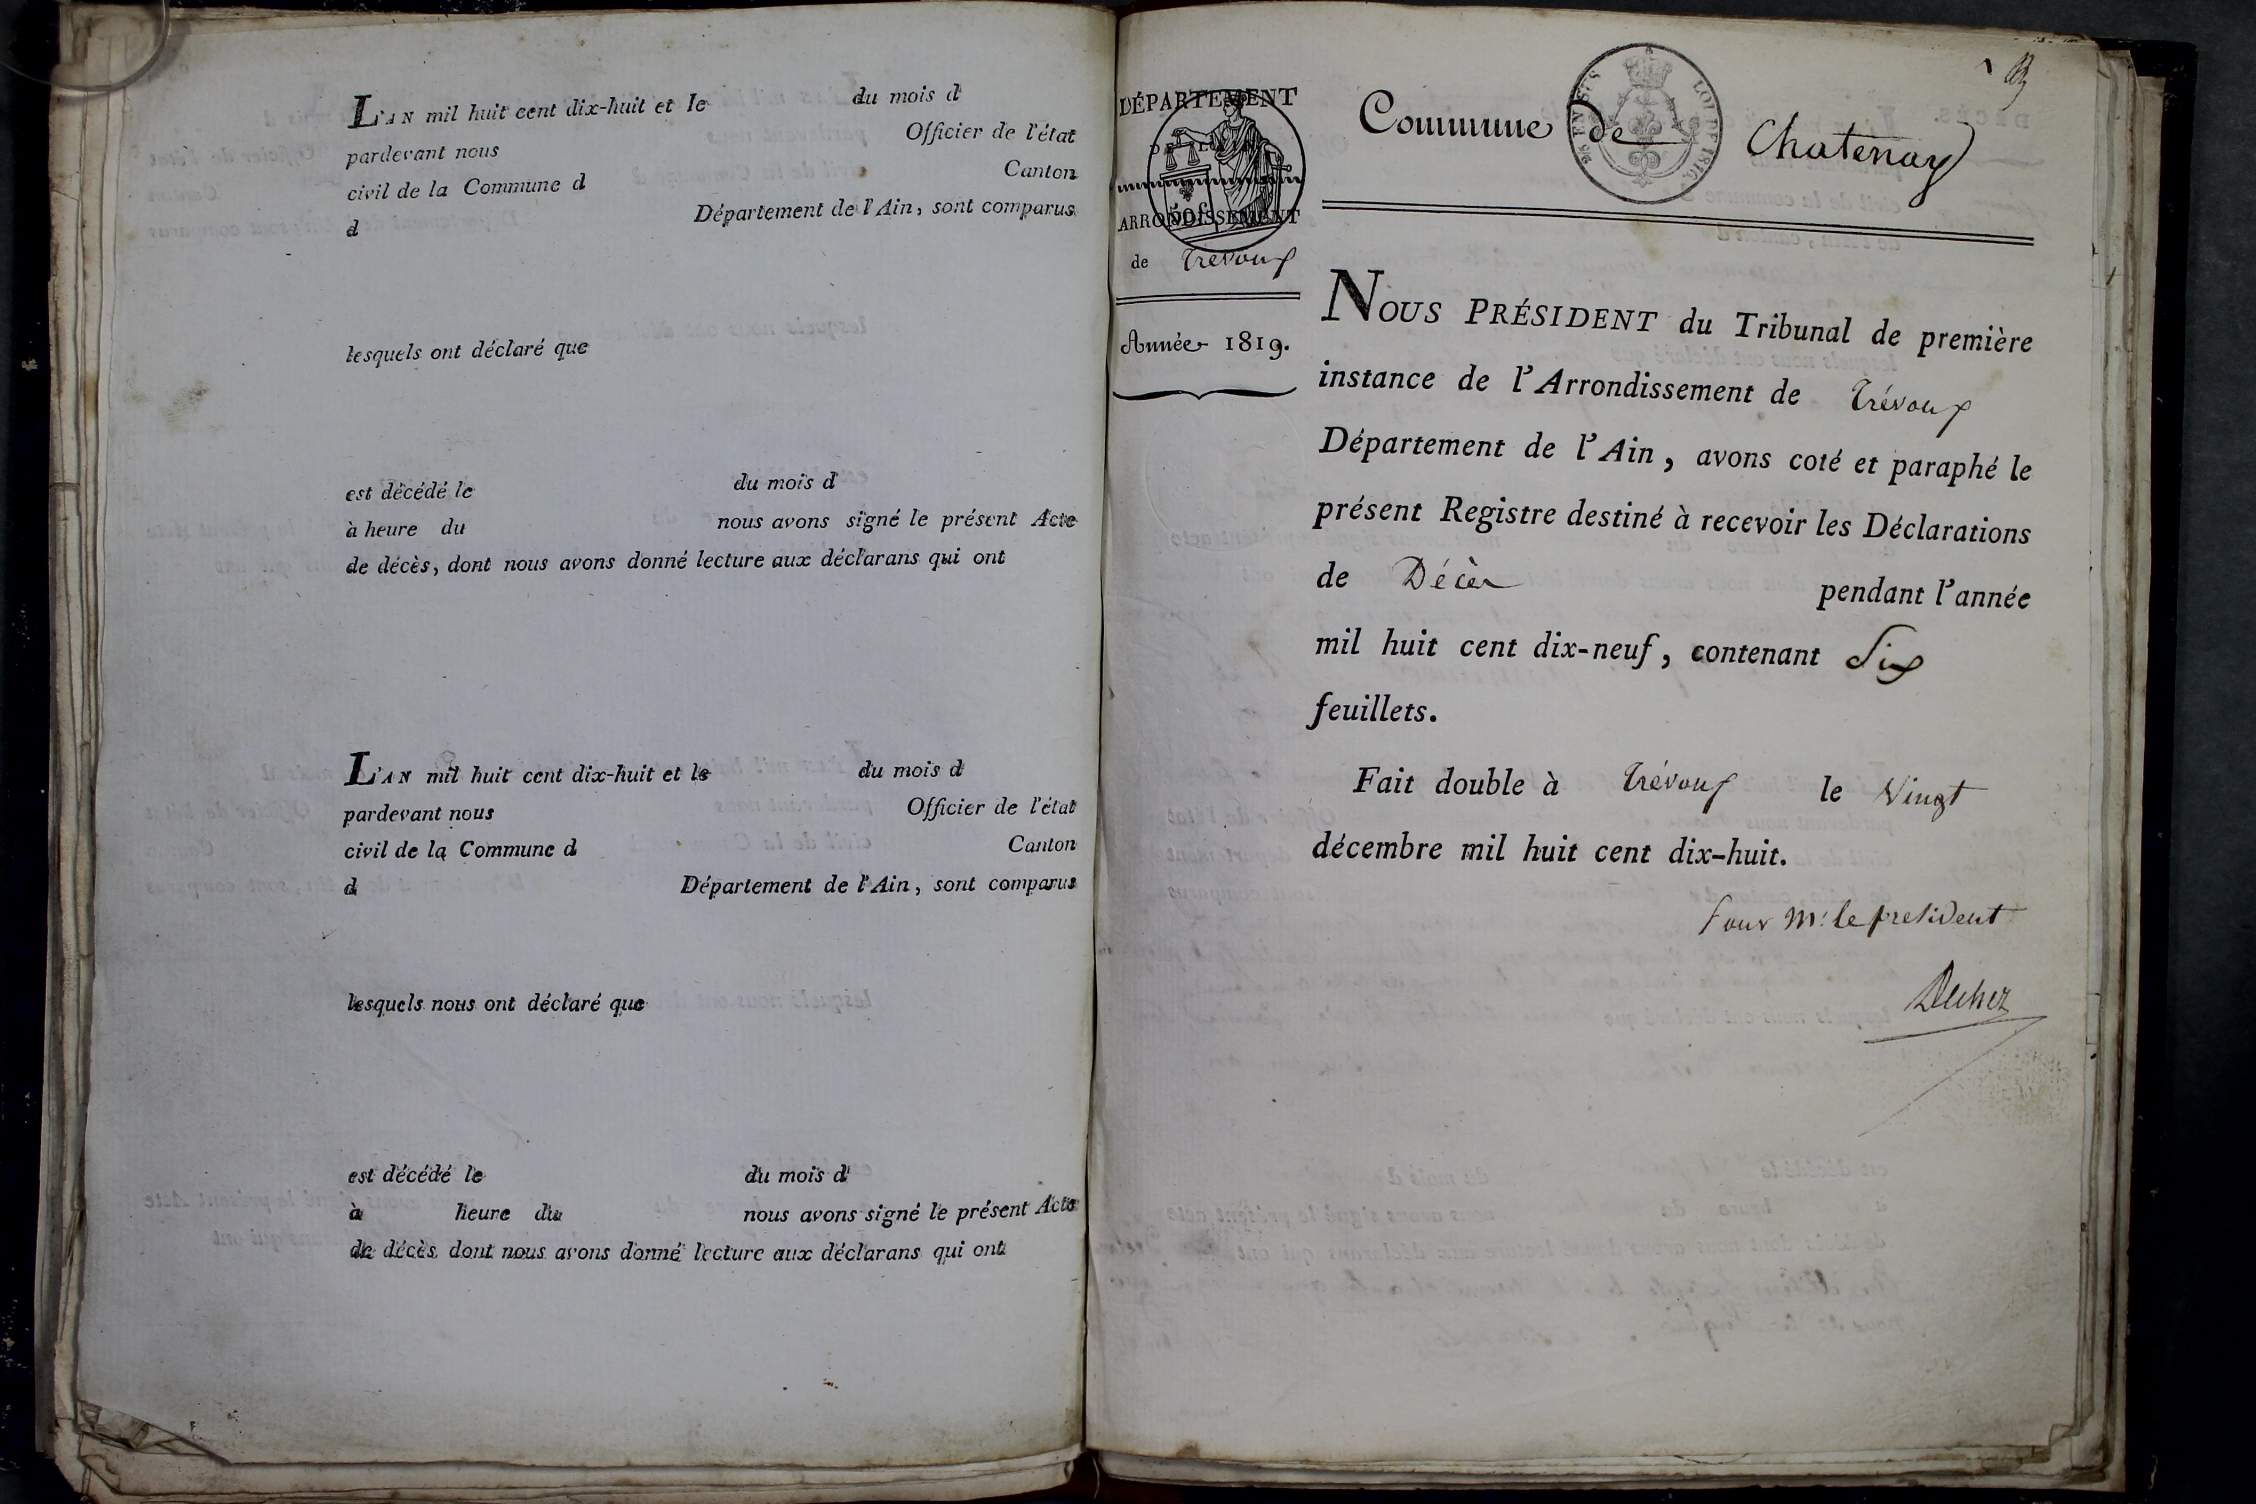 L'AN mil huit cent dix-huit et le du mois d
pardevant nous Officier de l'état
civil de la Commune d Canton
d Département de l'Ain, sont comparus
lesquels ont déclaré que
est décédé le du mois d
à heure du nous avons signé le présent Acte
de décès, dont nous avons donné lecture aux déclarans qui ont
L'AN mil huit cent dix-huit et le du mois d
pardevant nous Officier de l'état
civil de la Commune d Canton
d Département de l'Ain, sont comparus
lesquels nous ont déclaré que
est décédé le du mois d
à heure du nous avons signé le présent Acte
de décès, dont nous avons donné lecture aux déclarans qui ont
DÉPARTEMENT
DE L'AIN
50 c
ARRONDISSEMENT
de Trévoux
Année 1819.
Commune de Chatenay
LOI DE 1816.
NOUS PRÉSIDENT du Tribunal de première
instance de l'Arrondissement de Trévoux
Département de l'Ain, avons coté et paraphé le
présent Registre destiné à recevoir les Déclarations
de Décès pendant l'année
mil huit cent dix-neuf, contenant Six
feuillets.
Fait double à Trévoux le Vingt
décembre mil huit cent dix-huit.
Pour Mr. le president